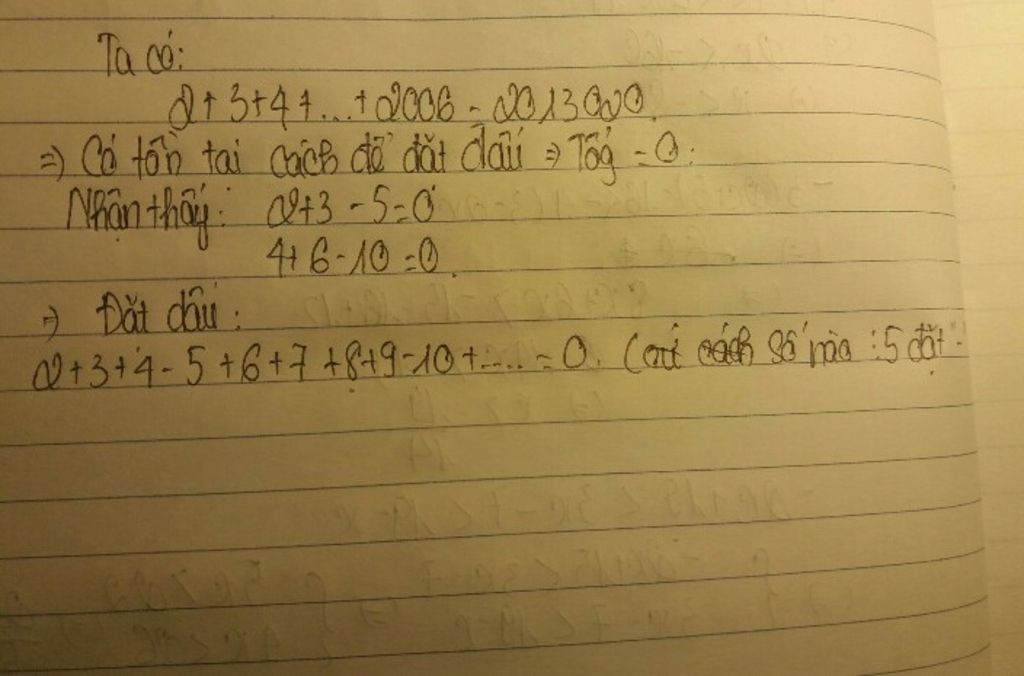 Ta có:
2+3+4+...+2006 = 2013020.
⇒ Có tồn tại cách để đặt dấu ⇒ Tổg = 0.
Nhận thấy: 2+3-5=0
4+6-10=0.
⇒ Đặt dấu:
2+3+4-5+6+7+8+9-10+.... = 0. ( cách số nào :5 đặt "-